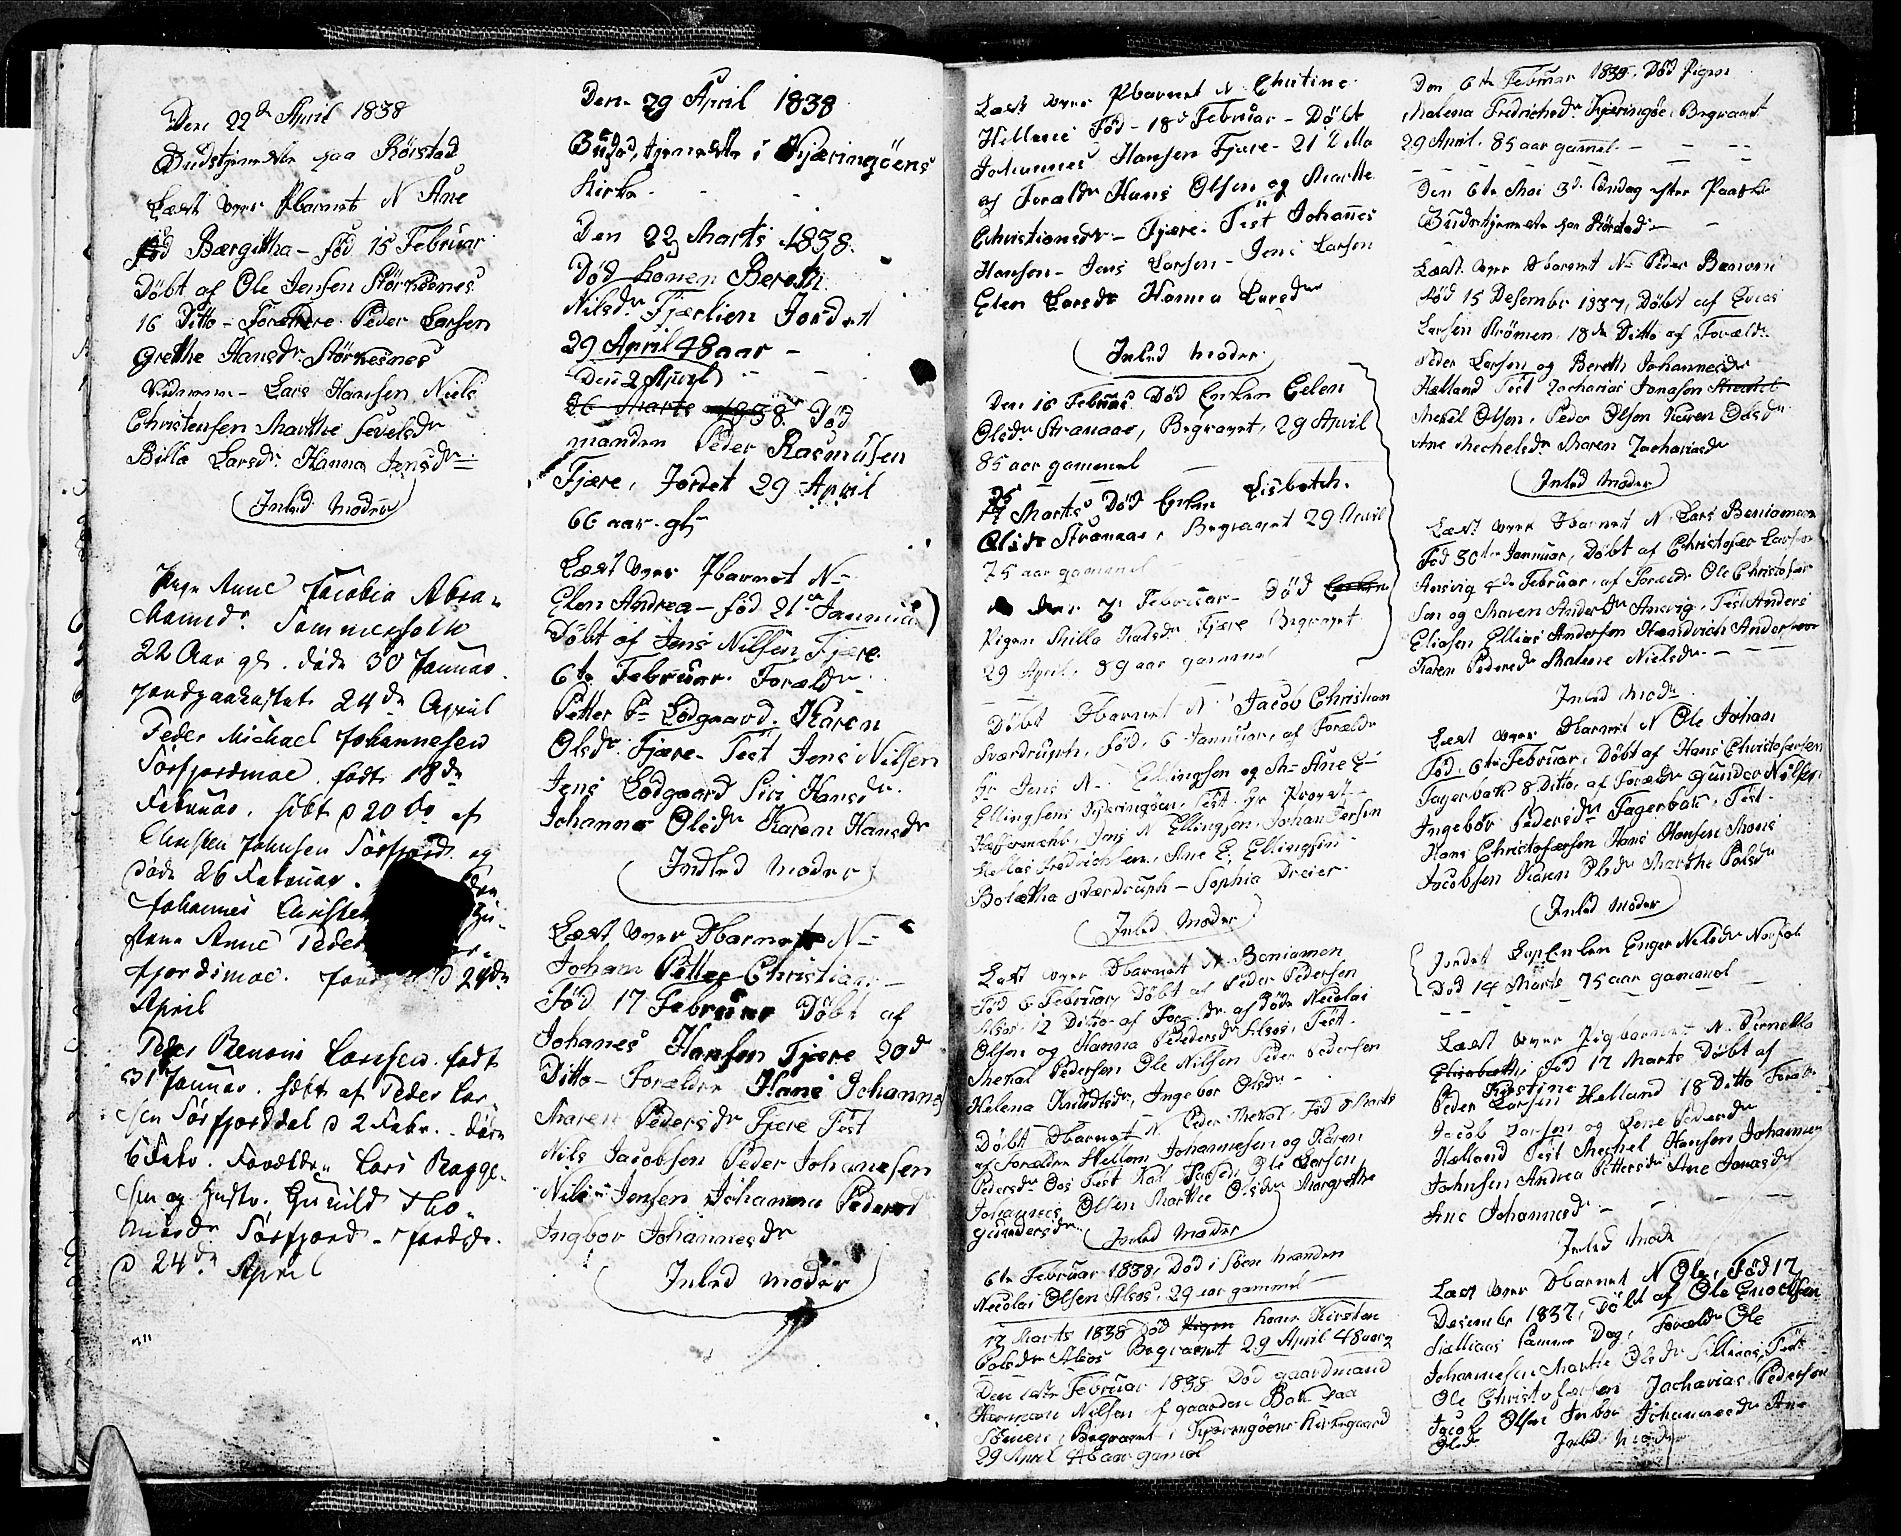 Den 22de April 1838
Gudstjeneste paa Rörstad
Læst over Pbarnet N Ane
Bærgitha - föd 15 Februar
Döbt af Ole Jensen Störkesnes
16 Ditto - Forældre Peder Larsen
Grethe Hansdr Störkesnes
Lars Hansen Niels
Christensen Marthe
Billa Larsdr Hanna Jensdr
Inled Moder
Pige Anne Jacobia Abra-
hamsdr
22 Aar gl. döde 30 Januar
Jordpaakastet 24de April
Peder Michael Johannesen
Törfjordmoe födt 18de
Februar, döbt d 20 do af
Christen Johnsen Törfjord og
döde 26 Februar.
Johannes Christen
Anne Peder
fjordmoe. d 24de
April
Peder Benoni Larssen födt
31 Januar. döbt af Peder Lar-
sen Törfjorddal d 2 Febr. - döde
6 Febr. Forældre Lars Bagge-
sen og Hustr. Gunild Tho-
masdr Törfjord - Jordedes
d 24de April
Den 29 April 1838
Gudstjeneste i Kjæringöens
Kirke
Den 22 Marts 1838
Död konen Bereth
Nilsdr Fjærlien Jordet
29 April 48 aar -
Den 2 April
26 Marts 1838 Död
manden Peder Rasmusen
Fjære, Jordet 29 April
66 aar gl
Læst over Pbarnet N -
Elen Andrea - föd 21de Januar
Döbt af Jens Nilsen Fjære
6te Februar. Forældr
Petter P Lodgaard. Karen
Olsdr Fjære - Test Jens Nilsen
Jens Lodgaard Siri Hansdr
Johanna Olsdr Karen Hansdr
Indled Moder
Læst over Dbarnet N -
Johan Petter Christian -
Föd 17 Februar Döbt af
Johanes Hansen Fjære 20de
Ditto - Forældre Hans Johannes
Maren Pedersdr Fjære Test
Nils Jacobsen Peder Johannesen
Nils Jensen Johanna Pedersd
Ingbor Johannesdr
Inled Moder
Læst over Pbarnet N Christine
Hellene Föd - 18de Februar - Döbt
Johannes Hansen Fjære - 21 Ditto
af Forældr Hans Olsen og Marthe
Christiansdr - Fjære. Test Johannes
Hansen - Jens Larsen - Jens Larsen
Elen Larsdr Hanna Larsdr
Inled Moder
Den 16 Februar Död Enken Eelen
Olsdr Stranaae, Begravet, 29 April
85 aar gammel
25
Marts Död Enken Lisbeth
Olsdr Stranaae, Begravet 29 April
75 aar gammel
den 3 Februar - Död Enken
Pigen Milla Fjære Begravet
29 April. 89 aar gammel
Döbt Dbarnet N Jacob Christian
Sværdruph, Föd, 6 Januar, af Forældr
Hr Jens N - Ellingsen og M Ane E -
Ellingsens Kjæringöen, Test Hr Provst
Jens N Ellingsen, Johan Jersin
Fredrichsen, Ane E, Ellingsen
Bolætha Sværdruph - Sophia Dreier
Inled Moder
Læst over Dbarnet N Beniamen
Föd 6 Februar Döbt af Peder Pedersen
Alsos, 12 Ditto af Foreldr af Döde Nicolai
Olsen og Hanna Pedersdr Alsos, Test
Mekal Pedersen Ole Nilsen Peder Pedersen
Helena Knudtsdr, Ingebor Olsdr
Döbt Dbarnet N Peder Mekal, Föd 8 Marts
af Forældre Hellem Johannesen og Karen
Pedersdr Oos Test Ole Larsen
Johannes Olsen Marthe Olsdr Margrethe
Gundersdr
Inled Moder
6te Februar 1838, Död i Söen Manden
Nicolai Olsen Alsos, 29 aar gammel
17 Marts 1838 Död Pigen kone Kirsten
Alsos Begravet 29 April 48 aar
Den Februar 1838 Död gaardmand
Herman Nilsen af gaarden Bak paa
Begravet i Kjæringöens Kirkegaard
29 April 46 aar gamel
Den 6te Februar 1838. Död Pigen
Malena Fredrichsdr Kjæringöe, Begravet
29 April. 85 aar gammel -
Den 6te Mai 3de Söndag efter Paaske
Gudstjeneste paa Rörstad -
Læst over Dbarnet N - Peder Benoni
Född 15 Desembr 1837, Döbt af Lucas
Larsen Strömen, 18de Ditto af Forældr
Peder Larsen og Bereth Johannesdr
Hælland Test Zacharias Jonasen
Mekel Olsen, Peder Olsen Karen Olsdr
Ane Mechelsdr Maren Zachariasdr
Inled Moder
Læst over Dbarnet N. Lars Beniamen
Föd 30te Januar, Döbt af Christofær Larsen
Ansvig 4de Februar, af Forældr Ole Christofær
Sen og Maren Andersdr Ansvig, Test Anders
Eliasen Ellias Andersen Hendrich Andersen
Karen Pedersdr Malene Nielsdr -
Inled Modr
Læst over Dbarnet N Ole Johan
Föd, 6te Februar, Döbt af Hans Christofersen
Fagerbak 8 Ditto, af Forældr Gunder Nilsen
Ingebör Pedersdr Fagerbak, Test -
Hans Christofærsen Hans Hansen Mons
Jacobsen Karen Olsdr Marthe Polsdr
Inled Moder
Jordet Enken Enger Nilsdr
Död 14 Marts 75 aar gammel
Læst over Pigbarnet N. Pernella
Elisabeth, Föd 17 Marts Döbt af
Kirstine
Peder Larsen Helland 18 Ditto Foræl
Jacob Larsen og Lene Pedersdr
Hælland Test Mechel Hansen Johannes
Johnsen Andrea Pettersdr Ane Jonasdr
Ane Johannesdr -
Inled Mode
Læst over Dbarnet N Ole, Föd 17
Desember 1837, Döbt af Ole Enochsen
Samme Dag, Forældr Ole
Johannesen Marthe Olsdr Test
Ole Christofærsen Zacharias Pedersen
Jacob Olsen Inbor Johannesdr Ane
Olsdr Inled Moder